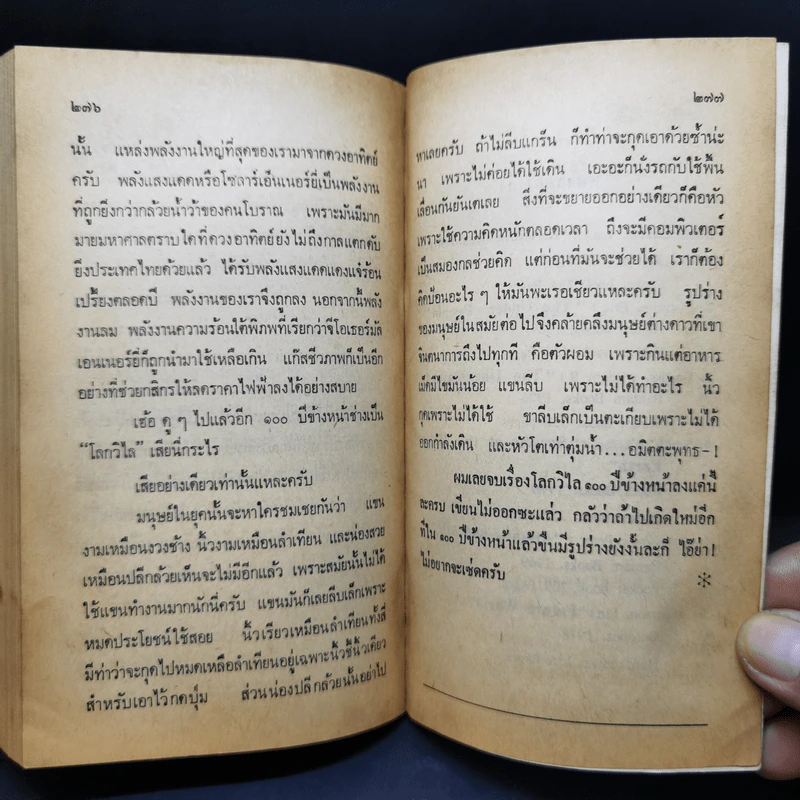 ๒๗๖
นั้น แหล่งพลังงานใหญ่ที่สุดของเรามาจากดวงอาทิตย์
ครับ พลังแสงแดดหรือโซลาร์เอ็นเนอร์ยี่เป็นพลังงาน
ที่ถูกยิ่งกว่ากล้วยน้ำว้าของคนโบราณ เพราะมันมีมาก
มายมหาศาลตราบใดที่ดวงอาทิตย์ยังไม่ถึงกาลแตกดับ
ยิ่งประเทศไทยด้วยแล้ว ได้รับพลังแสงแดดแดงแจ๋ร้อน
เปรี้ยงตลอดปี พลังงานของเราจึงถูกลง นอกจากนี้พลัง
งานลม พลังงานความร้อนใต้พิภพที่เรียกว่าจีโอเธอร์มัล
เอนเนอร์ยี่ก็ถูกนำมาใช้เหลือเกิน แก๊สชีวภาพก็เป็นอีก
อย่างที่ช่วยกสิกรให้ลดราคาไฟฟ้าลงได้อย่างสบาย
เฮ้อ ดู ๆ ไปแล้วอีก ๑๐๐ ปีข้างหน้าช่างเป็น
“โลกวิไล” เสียนี่กระไร
เสียอย่างเดียวเท่านั้นแหละครับ
มนุษย์ในยุคนั้นจะหาใครชมเชยกันว่า แขน
งามเหมือนงวงช้าง นิ้วงามเหมือนลำเทียน และน่องสวย
เหมือนปลีกล้วยเห็นจะไม่มีอีกแล้ว เพราะสมัยนั้นไม่ได้
ใช้แขนทำงานมากนักนี่ครับ แขนมันก็เลยลีบเล็กเพราะ
หมดประโยชน์ใช้สอย นิ้วเรียวเหมือนลำเทียนทั้งสี่
มีท่าว่าจะกุดไปหมดเหลือลำเทียนอยู่เฉพาะนิ้วชี้นิ้วเดียว
สำหรับเอาไว้กดปุ่ม ส่วนน่องปลีกล้วยนั้นอย่าไป
๒๗๗
หาเลยครับ ถ้าไม่ลีบแกร็น ก็ทำท่าจะกุดเอาด้วยซ้ำน่ะ
นา เพราะไม่ค่อยได้ใช้เดิน เอะอะก็นั่งรถกับใช้พื้น
เลื่อนกันยันเตเลย สิ่งที่จะขยายออกอย่างเดียวก็คือหัว
เพราะใช้ความคิดหนักตลอดเวลา ถึงจะมีคอมพิวเตอร์
เป็นสมองกลช่วยคิด แต่ก่อนที่มันจะช่วยได้ เราก็ต้อง
คิดป้อนอะไร ๆ ให้มันพะเรอเชียวแหละครับ รูปร่าง
ของมนุษย์ในสมัยต่อไปจึงคล้ายคลึงมนุษย์ต่างดาวที่เขา
จินตนาการถึงไปทุกที คือตัวผอม เพราะกินแต่อาหาร
เม็ดมีไขมันน้อย แขนลีบ เพราะไม่ได้ทำอะไร นิ้ว
กุดเพราะไม่ได้ใช้ ขาลีบเล็กเป็นตะเกียบเพราะไม่ได้
ออกกำลังเดิน และหัวโตเท่าตุ่มน้ำ...อมิตตะพุทธ-!
ผมเลยจบเรื่องโลกวิไล ๑๐๐ ปีข้างหน้าลงแค่นี้
ละครับ เขียนไม่ออกซะแล้ว กลัวว่าถ้าไปเกิดใหม่อีก
ทีใน ๑๐๐ ปีข้างหน้าแล้วขืนมีรูปร่างยังงั้นละก็ ไอ๊ย่า!
ไม่อยากจะเซ่ดครับ *